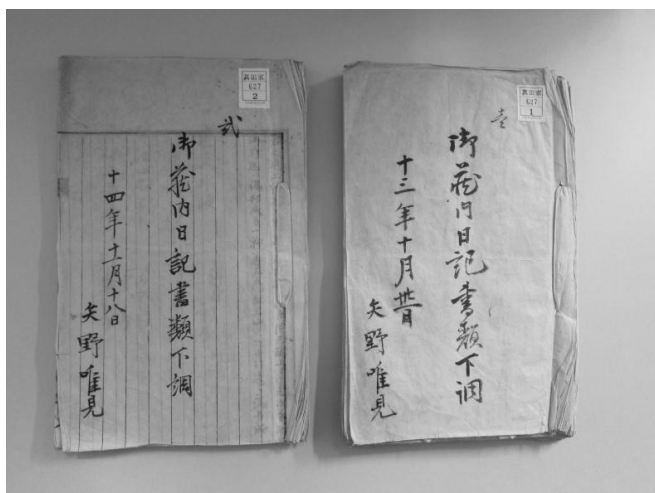 真田家
627
1
壱
御蔵内日記書類下調
十三年十月
矢野唯見
真田家
627
2
弐
御蔵内日記書類下調
十四年十二月十八日
矢野唯見